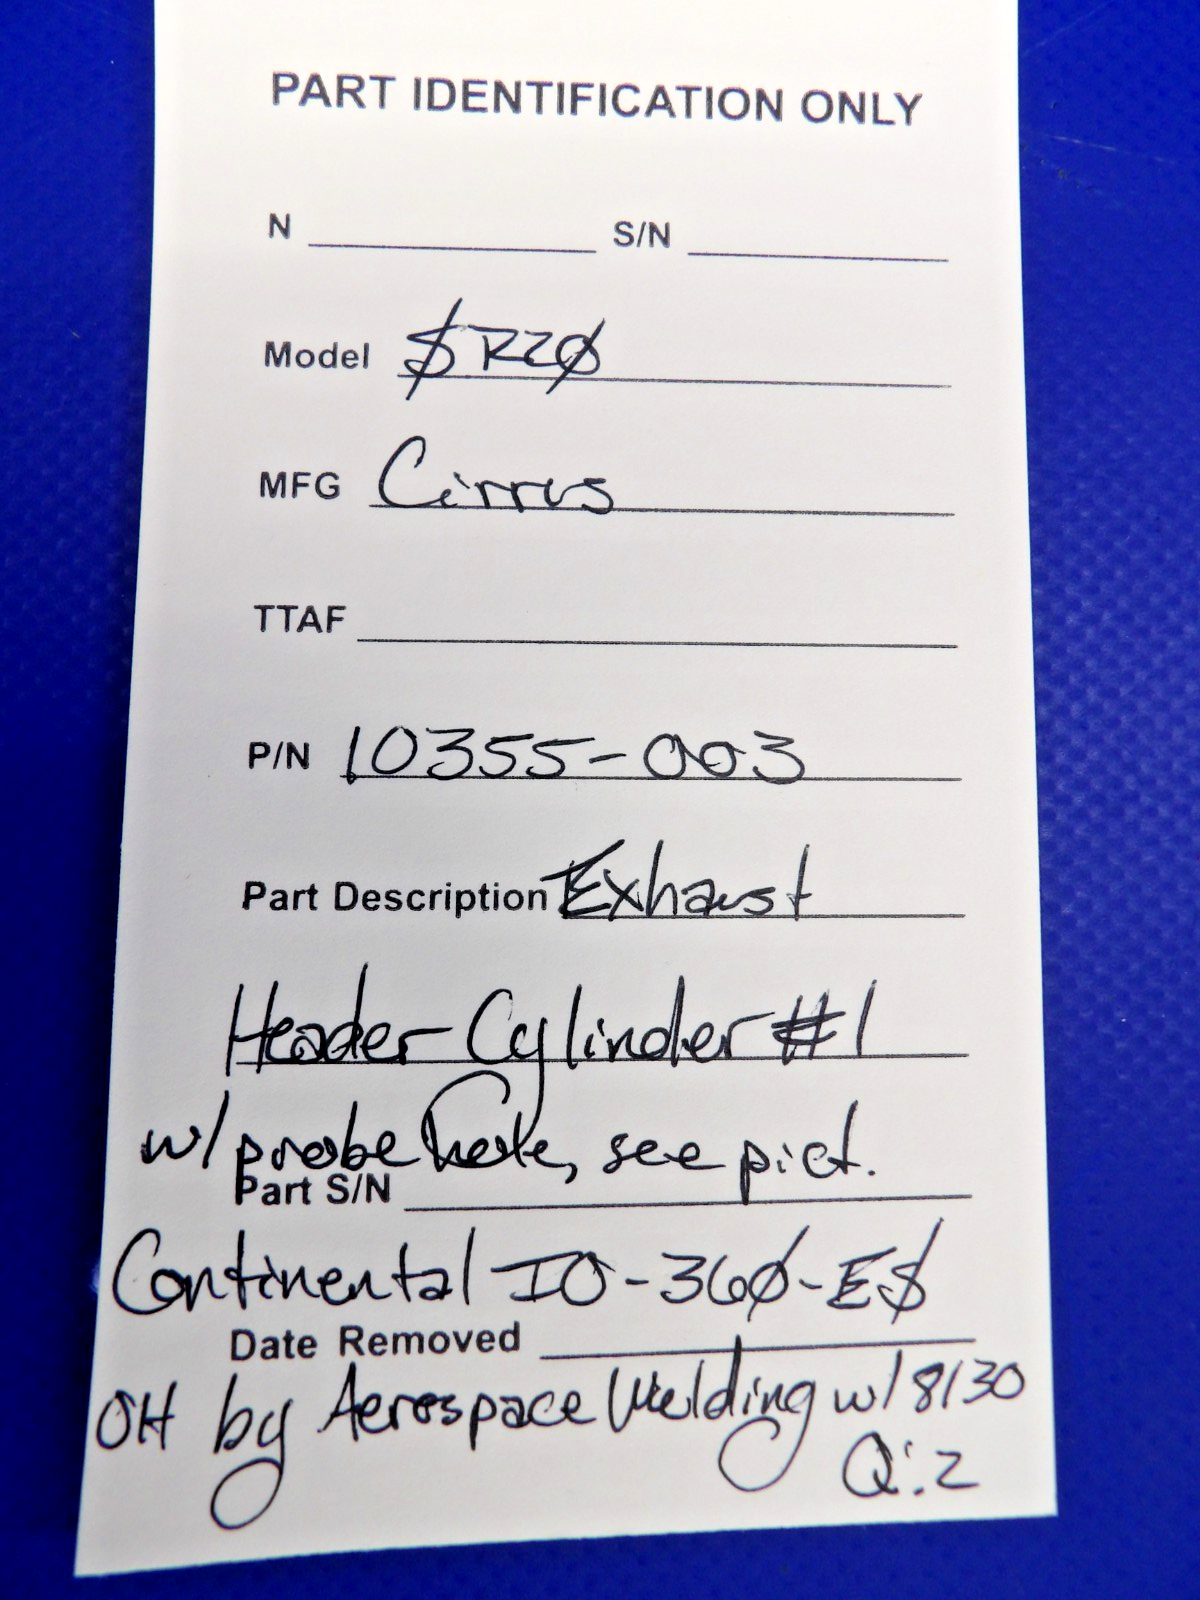 PART IDENTIFICATION ONLY
N S/N
Model SR20
MFG Cirrus
TTAF
P/N 10355-003
Part Description Exhaust
Header Cylinder #1
w/ probe hole, see pict.
Part S/N
Continental IO-360-ES
Date Removed
OH by Aerospace Welding w/ 8130
Q:2